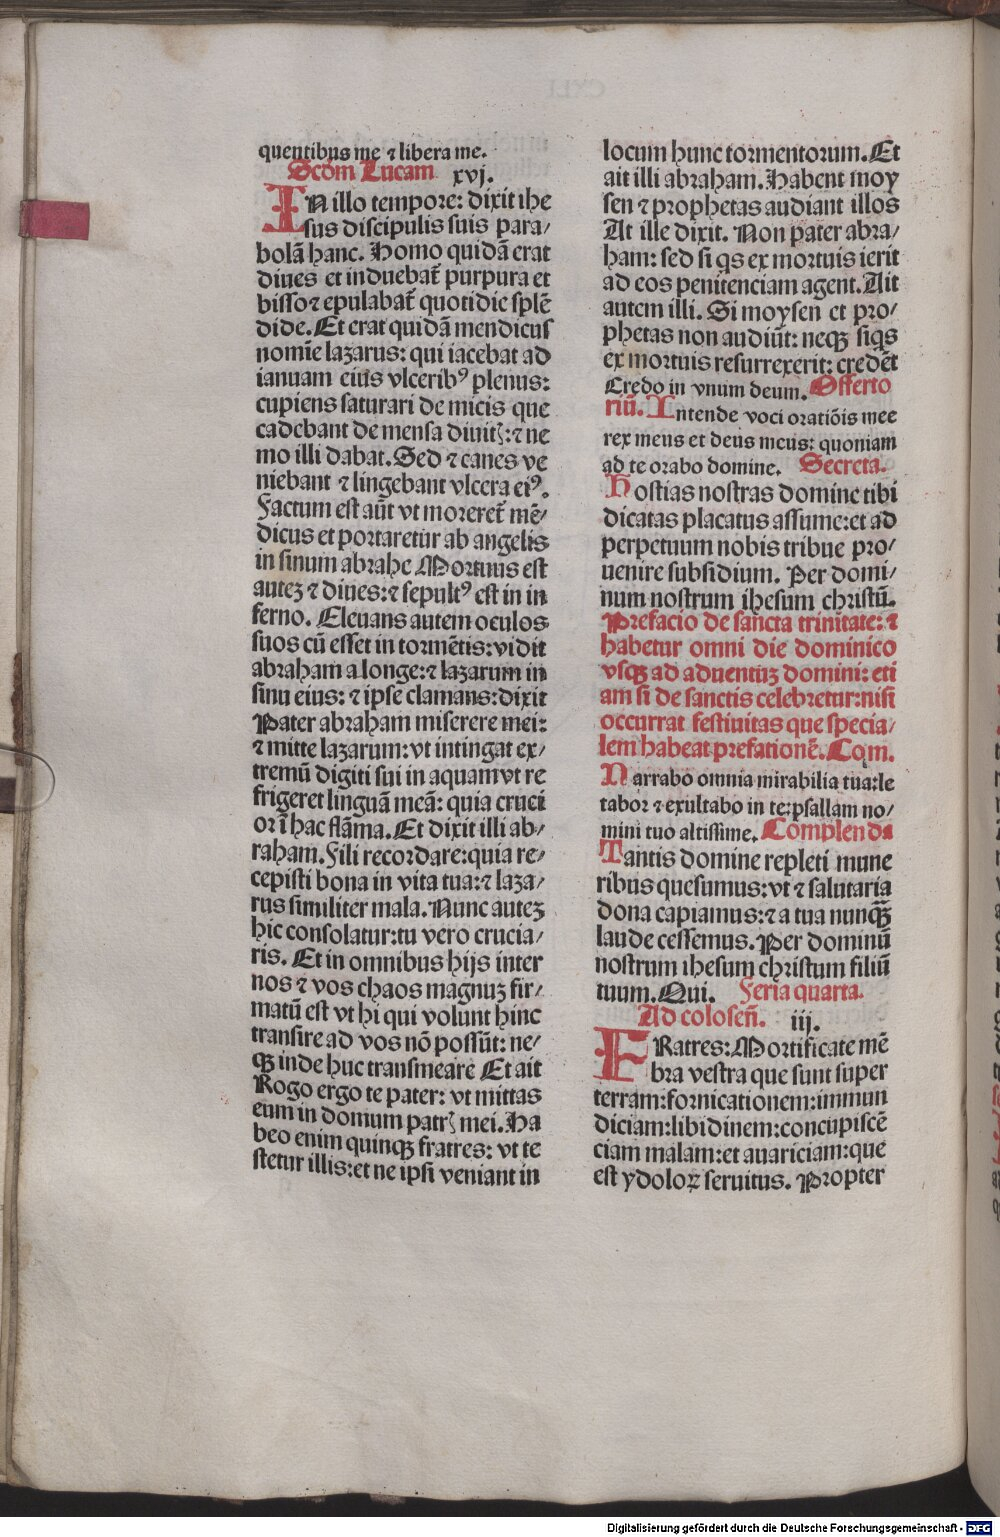 quentibus me ⁊ libera me.
Scḋm Lucam xvj.
IN illo tempore: dixit ihe
sus discipulis suis para/
bolā hanc. Homo quidā erat
diues et induebat᷑ purpura et
bisso⁊ epulabat᷑ quotidie splē
dide. Et erat quidā mendicus
nomīe lazarus: qui iacebat ad
ianuam eius vlceribꝰ plenus:
cupiens saturari de micis que
cadebant de mensa diuitꝭ:⁊ ne
mo illi dabat. Sed ⁊ canes ve
niebant ⁊ lingebant vlcera eiꝰ.
Factum est aūt vt moreret᷑ mē/
dicus et portaretur ab angelis
in sinum abrahe Mortuus est
autez ⁊ diues:⁊ sepultꝰ est in in
ferno. Eleuans autem oculos
suos cū esset in tormētis: vidit
abraham a longe:⁊ lazarum in
sinu eius: ⁊ ipse clamans: dixit
Pater abraham miserere mei:
⁊ mitte lazarum: vt intingat ex/
tremū digiti sui in aquam vt re
frigeret linguā meā: quia cruci
or ī hac flāma. Et dixit illi ab/
raham. Fili recordare: quia re/
cepisti bona in vita tua:⁊ laza/
rus similiter mala. Nunc autez
hic consolatur: tu vero crucia/
ris. Et in omnibus hijs inter
nos ⁊ vos chaos magnuz fir/
matū est vt hi qui volunt hinc
transire ad vos nō possūt: ne/
qꝫ inde huc transmeare Et ait
Rogo ergo te pater: vt mittas
eum in domum patrꝭ mei. Ha
beo enim quinqꝫ fratres: vt te
stetur illis: et ne ipsi veniant in
locum hunc tormentorum. Et
ait illi abraham. Habent moy
sen ⁊ prophetas audiant illos
At ille dixit. Non pater abra/
ham: sed si qs ex mortuis ierit
ad eos penitenciam agent. Ait
autem illi. Si moysen et pro/
phetas non audiūt: neqꝫ siqs
ex mortuis resurrexerit: credēt
Credo in vnum deum. Offerto
riū. Intende voci oratiōis mee
rex meus et deus meus: quoniam
ad te orabo domine. Secreta.
Hostias nostras domine tibi
dicatas placatus assume: et ad
perpetuum nobis tribue pro/
uenire subsidium. Per domi/
num nostrum ihesum christū.
Prefacio de sancta trinitate: ⁊
habetur omni die dominico
vsqꝫ ad aduentuz domini: eti
am si de sanctis celebretur: nisi
occurrat festiuitas que specia/
lem habeat prefationē. Com.
Narrabo omnia mirabilia tua: le
tabor ⁊ exultabo in te: psallam no/
mini tuo altissime. Complenda
Tantis domine repleti mune
ribus quesumus: vt ⁊ salutaria
dona capiamus: ⁊ a tua nunqꝫ̄
laude cessemus. Per dominū
nostrum ihesum christum filiū
tuum. Qui. Feria quarta.
Ad coloseñ. iij.
FRatres: Mortificate mē
bra vestra que sunt super
terram: fornicationem: immun
diciam: libidinem: concupiscē
ciam malam: et auariciam: que
est ydoloꝝ seruitus. Propter
Digitalisierung gefördert durch die Deutsche Forschungsgemeinschaft - DFG